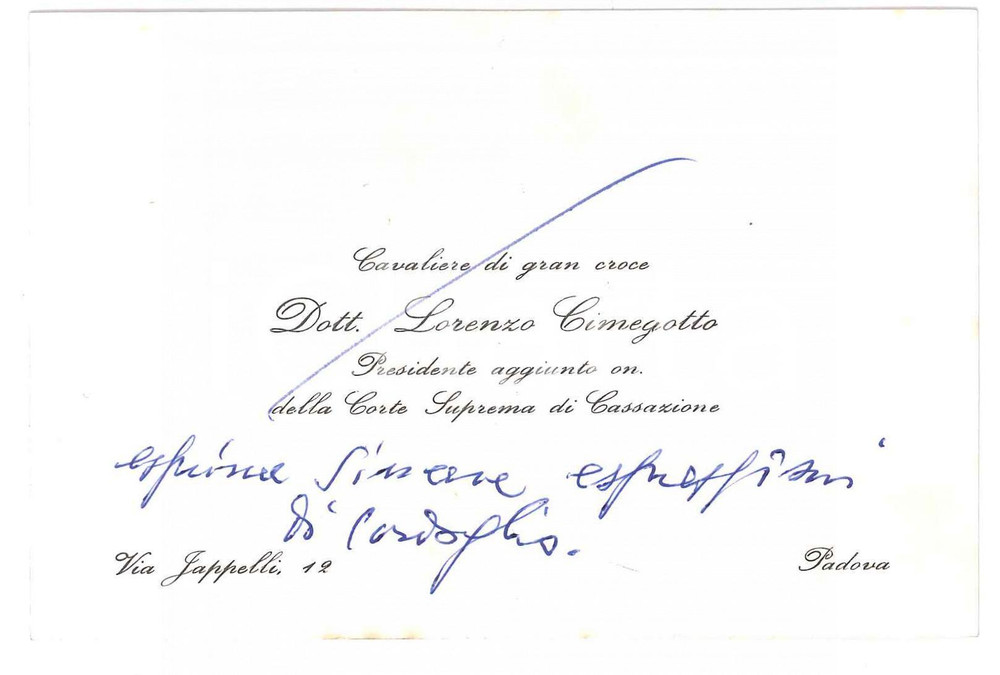 Cavaliere di gran croce
Dott. Lorenzo Cimegotto
Presidente aggiunto on.
della Corte Suprema di Cassazione
esprime sincere espressioni
di cordoglio.
Via Jappelli, 12 Padova